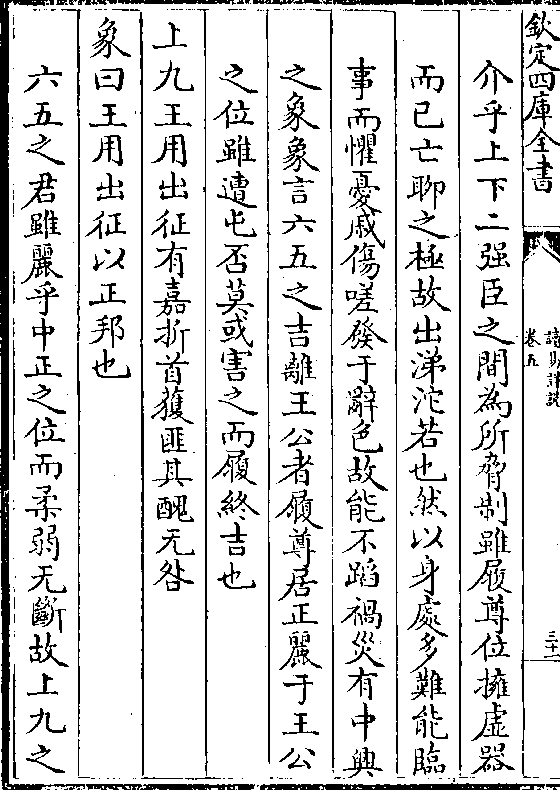 欽定四庫全書
卷五
三十二
介乎上下二强臣之間為所脅制雖履尊位擁虛器
而已亡聊之極故出涕沱若也然以身處多難能臨
事而懼憂戚傷嗟發于辭色故能不蹈禍災有中興
之象象言六五之吉離王公者履尊居正麗于王公
之位雖遭屯否莫或害之而履終吉也
上九王用出征有嘉折首獲匪其醜无咎
象曰王用出征以正邦也
六五之君雖麗乎中正之位而柔弱无斷故上九之